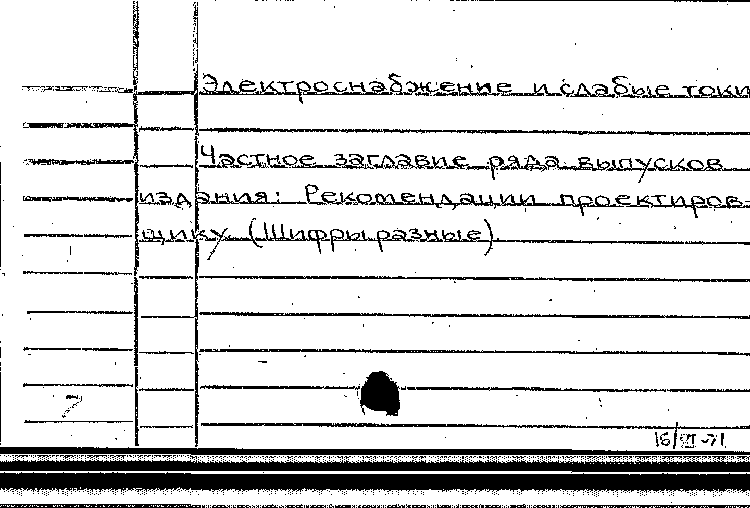 Электроснабжение и слабые токи
Частное заглавие ряда выпусков
издания: Рекомендации проектиров-
щику (Шифры разные)
7
16/VI-71